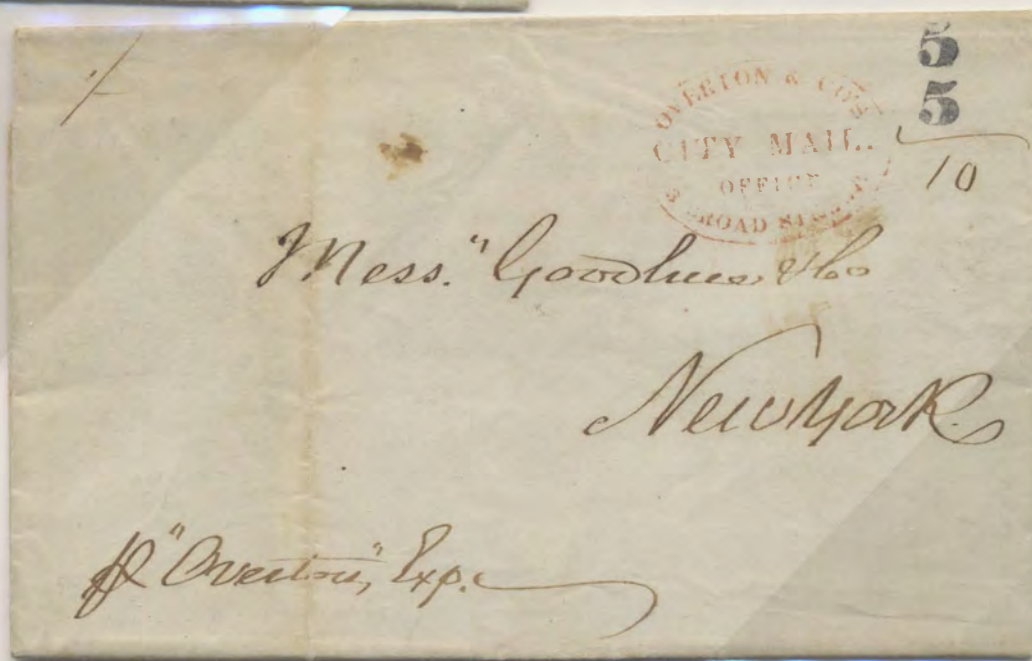 5
5
10
OVERTON & COS
CITY MAIL.
OFFICE
BROAD STREET
Mess.rs Goodhue & Co
New York
p "Overton" Exp.